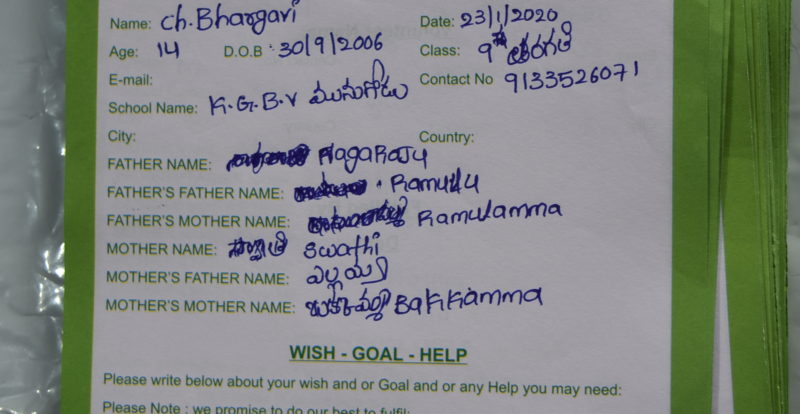 Name: Ch. Bhargavi Date: 23/1/2020
Age: 14 D.O.B: 30/9/2006 Class: 9 తరగతి
E-mail: Contact No 9133526071
School Name: K.G.B.V మునుగోడు
City: Country:
FATHER NAME: NagaRaju
FATHER'S FATHER NAME: Ramullu
FATHER'S MOTHER NAME: Ramulamma
MOTHER NAME: స్వాతి Swathi
MOTHER'S FATHER NAME: ఎల్లయ్య
MOTHER'S MOTHER NAME: బక్కమ్మ Bakkamma
WISH - GOAL - HELP
Please write below about your wish and or Goal and or any Help you may need:
Please Note : we promise to do our best to fulfil: